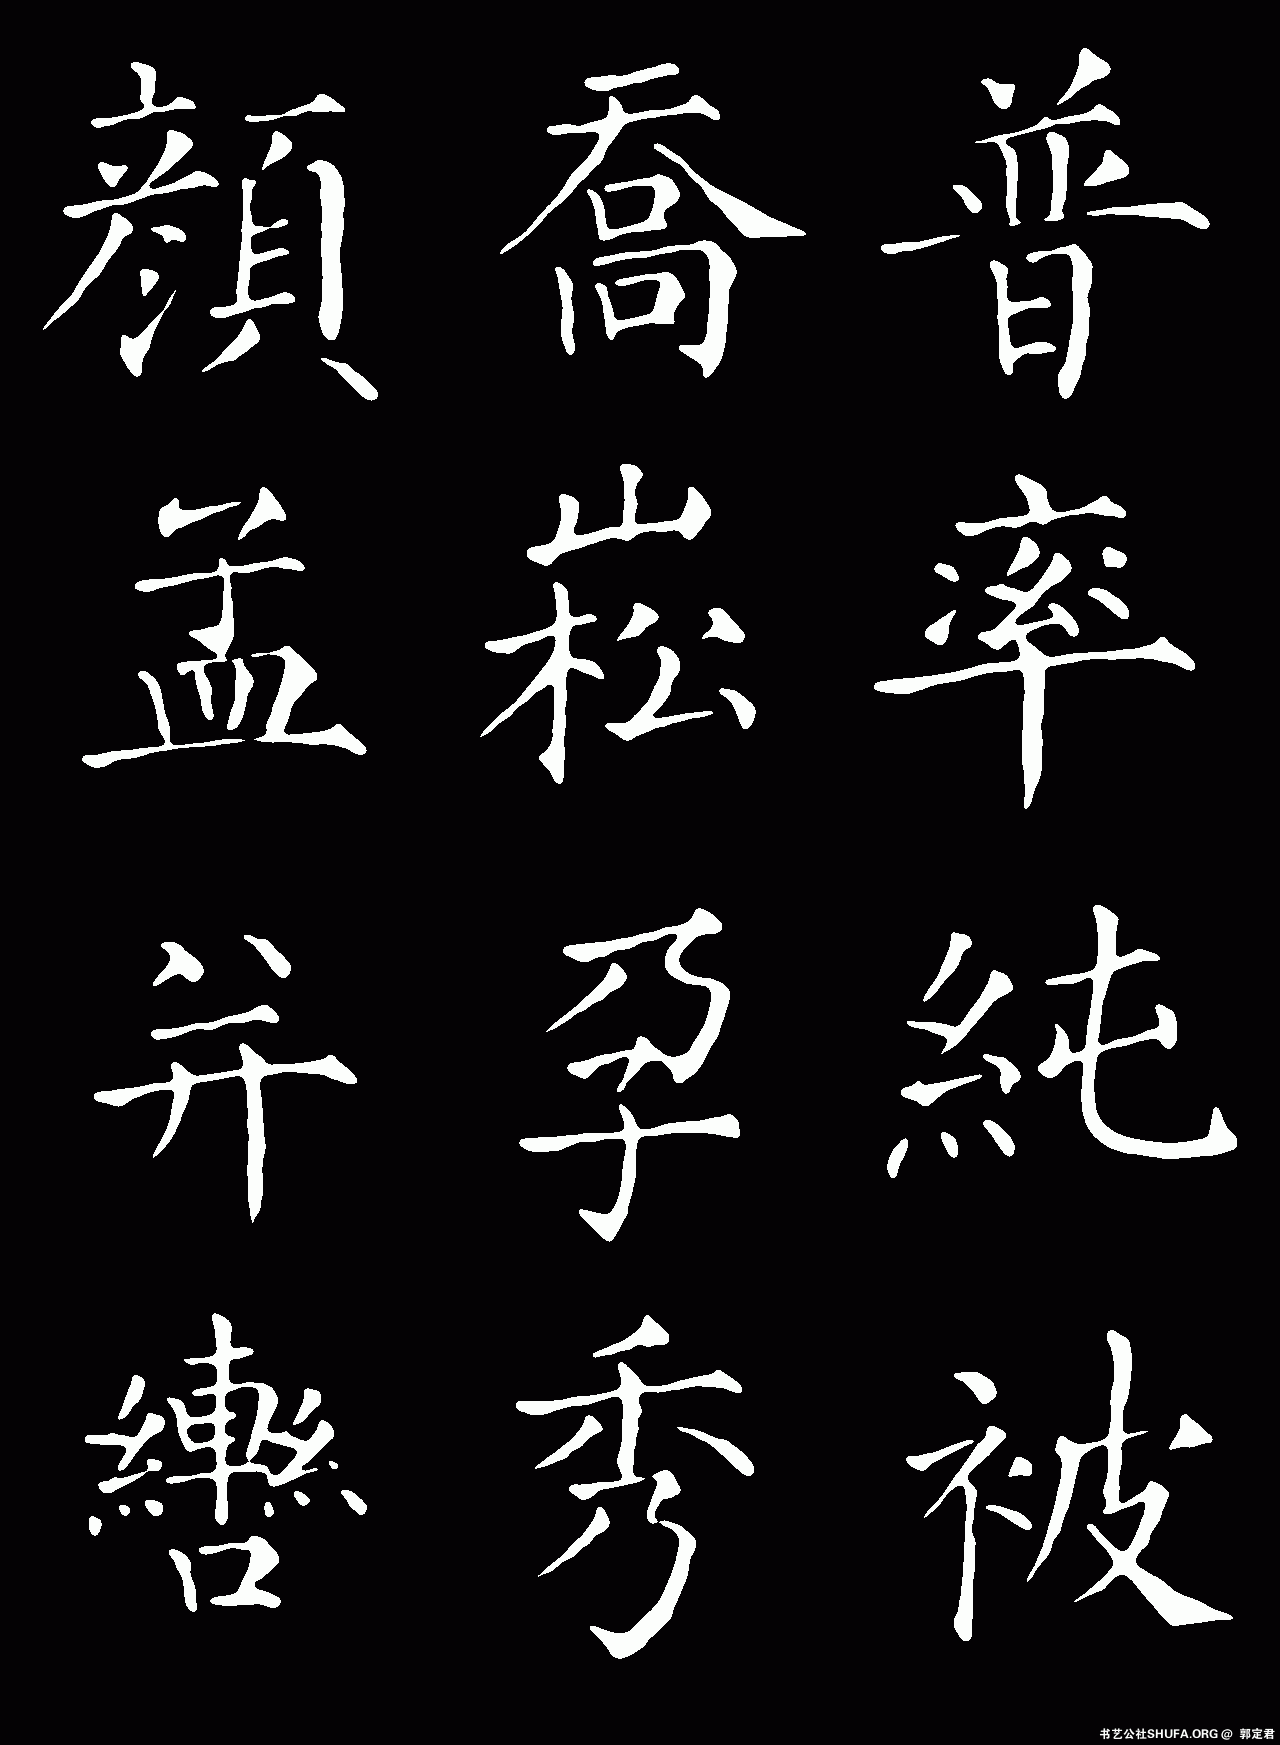 普率純被
喬崧孕秀
顏孟并轡
书艺公社SHUFA.ORG @ 郭定君